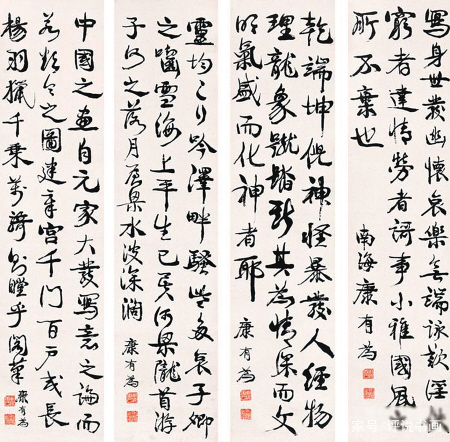 寫身世發幽懷哀樂無端詠歎淫
窮者達情勞者謌事小雅國風
所不棄也
南海康有為
乾端坤倪神怪暴發人經物
理龍象蹴踏其為情深而文
明氣盛而化神者耶
康有為
靈均之行吟澤畔騷些多哀子卿
之嚙雪海上平生已矣河梁隴首游
子何之落月屋梁水波深闊
康有為
中國之畫自元家大發寫意之論而
若欲令之圖建章宮千門百戶或長
楊羽獵千乘萬騎則瞠乎閣筆
康有為